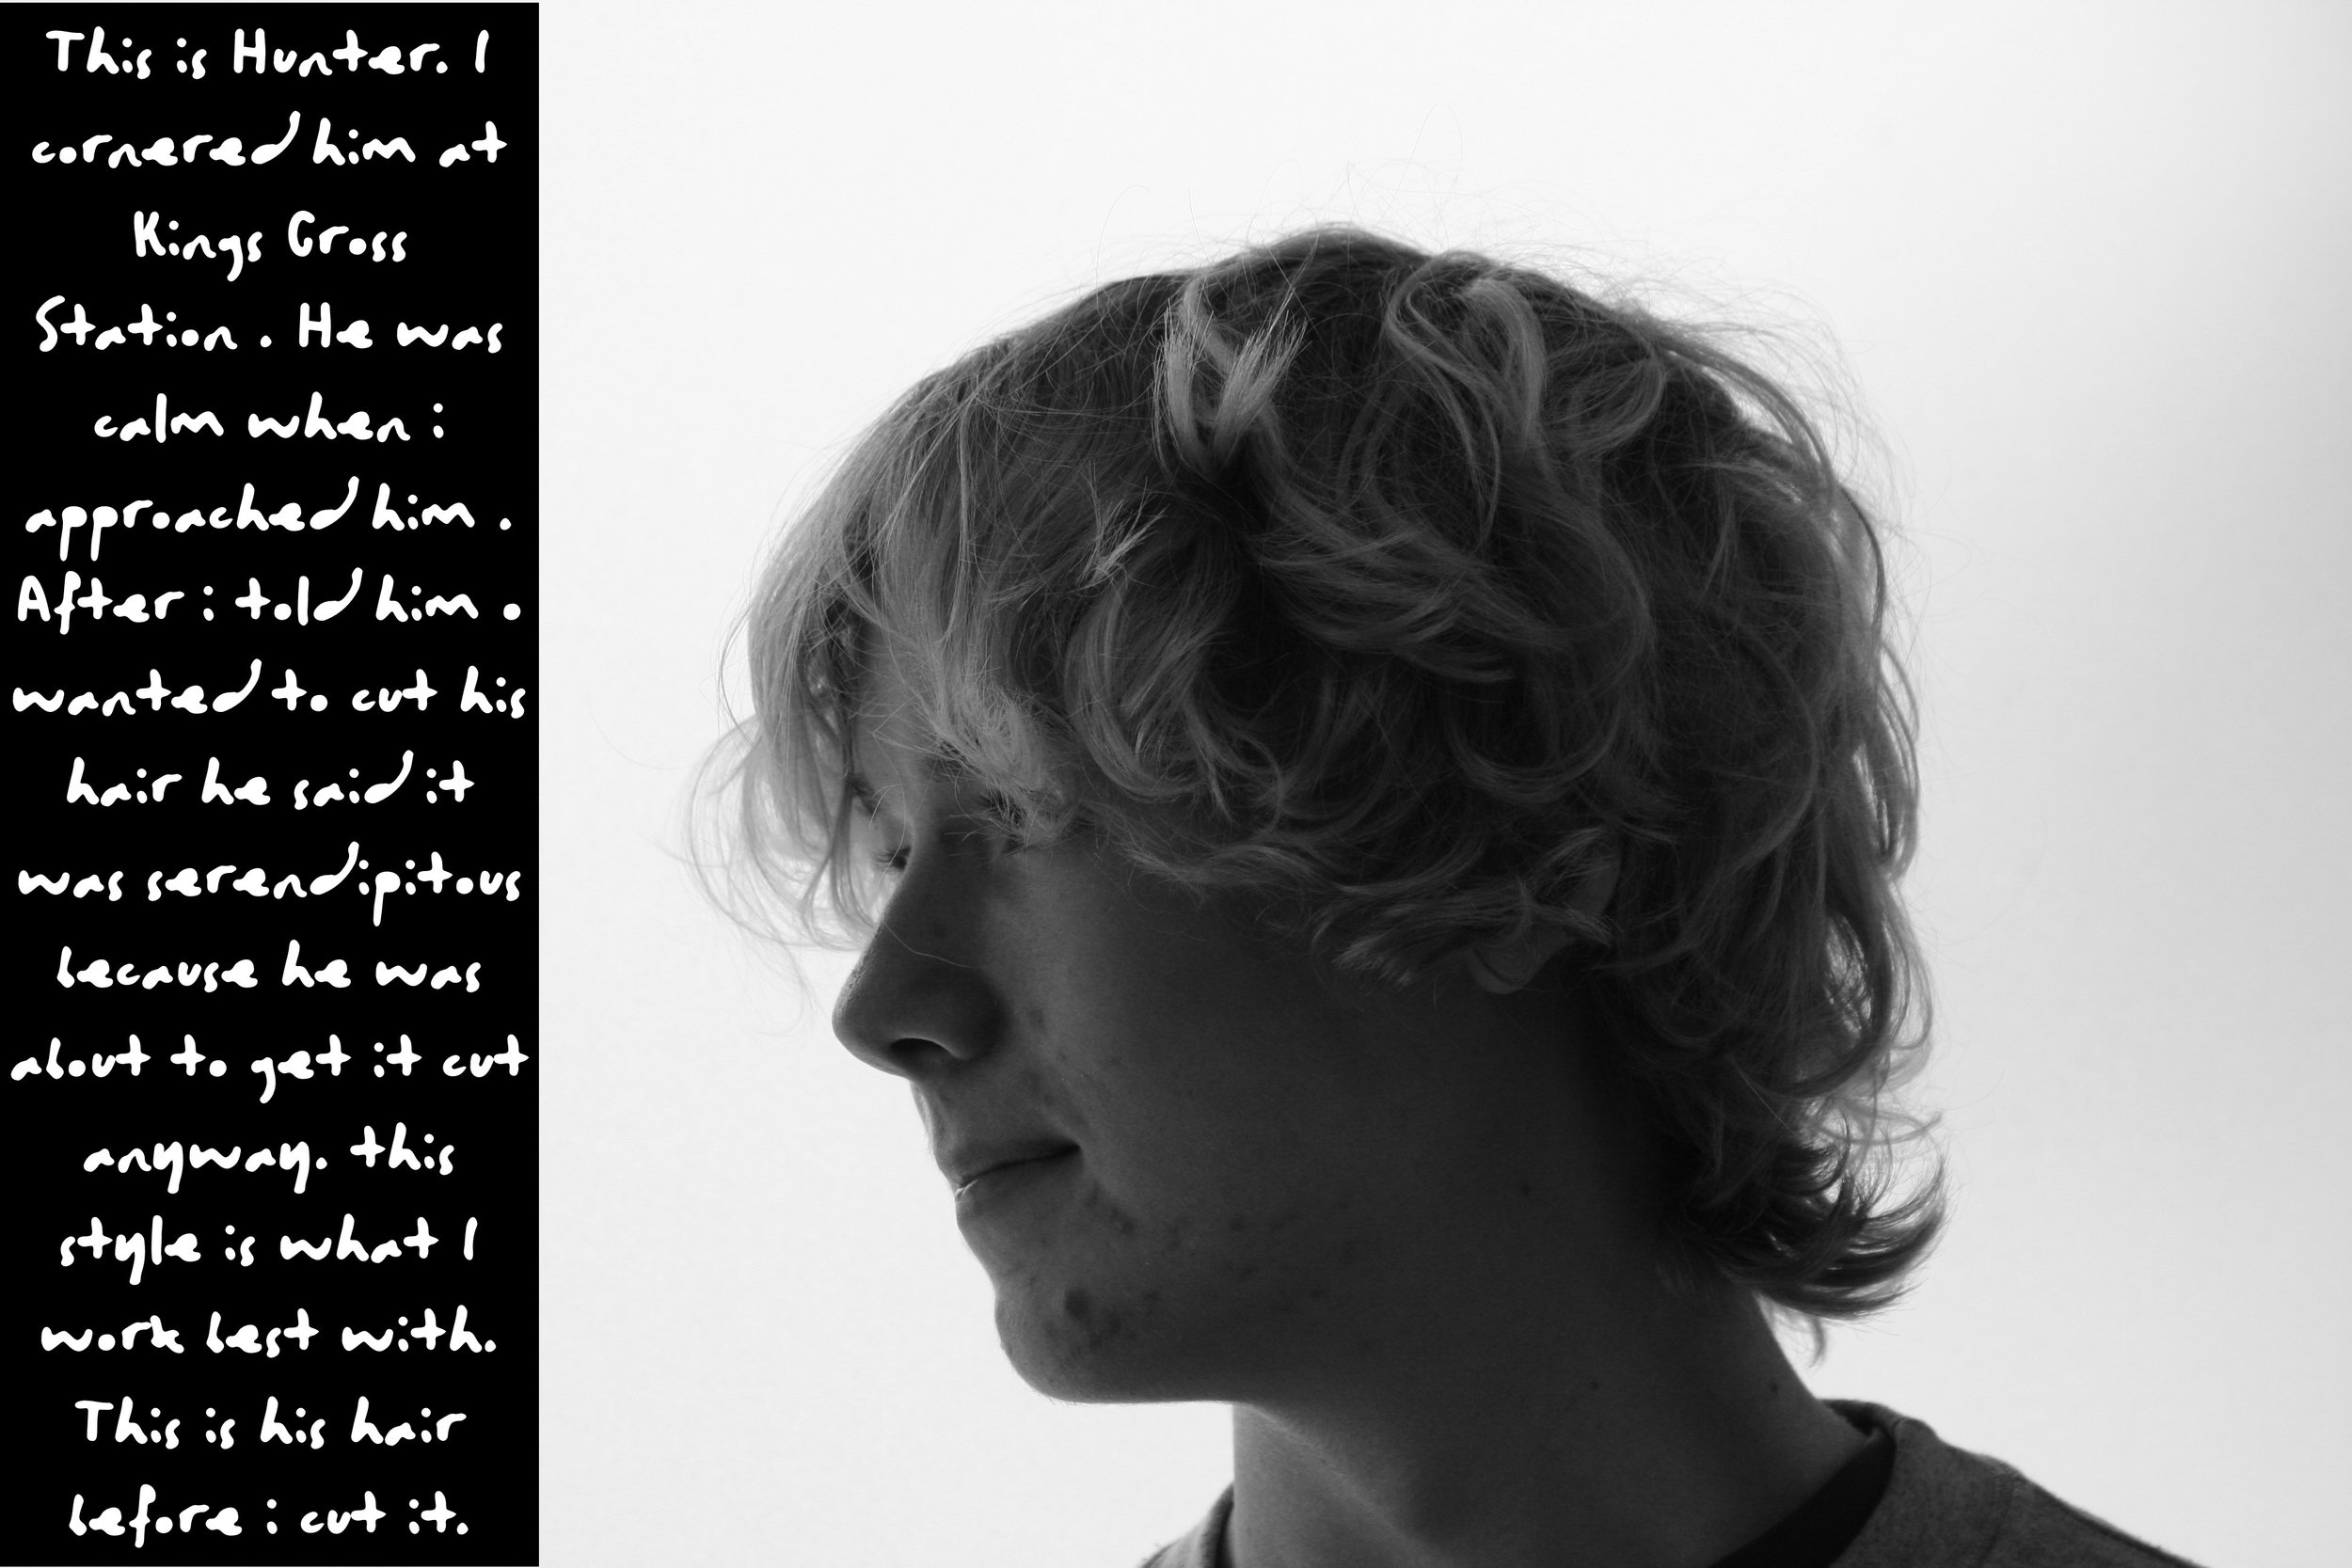 This is Hunter. I
cornered him at
Kings Cross
Station . He was
calm when i
approached him .
After i told him .
wanted to cut his
hair he said it
was serendipitous
because he was
about to get it cut
anyway. this
style is what I
work best with.
This is his hair
before i cut it.